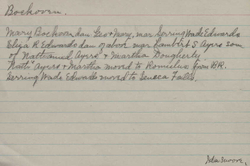 Bockoven.
Mary Bockoven dau Geo & Mary, mar Gorring Wade Edwards
Eliza R Edwards dau of above mar Lambert S Ayers son
of Nathaniel Ayers & Martha Dougherty
Ayers & Martha moved to Romulus from B.R.
Gorring Wade Edwards moved to Seneca Falls.